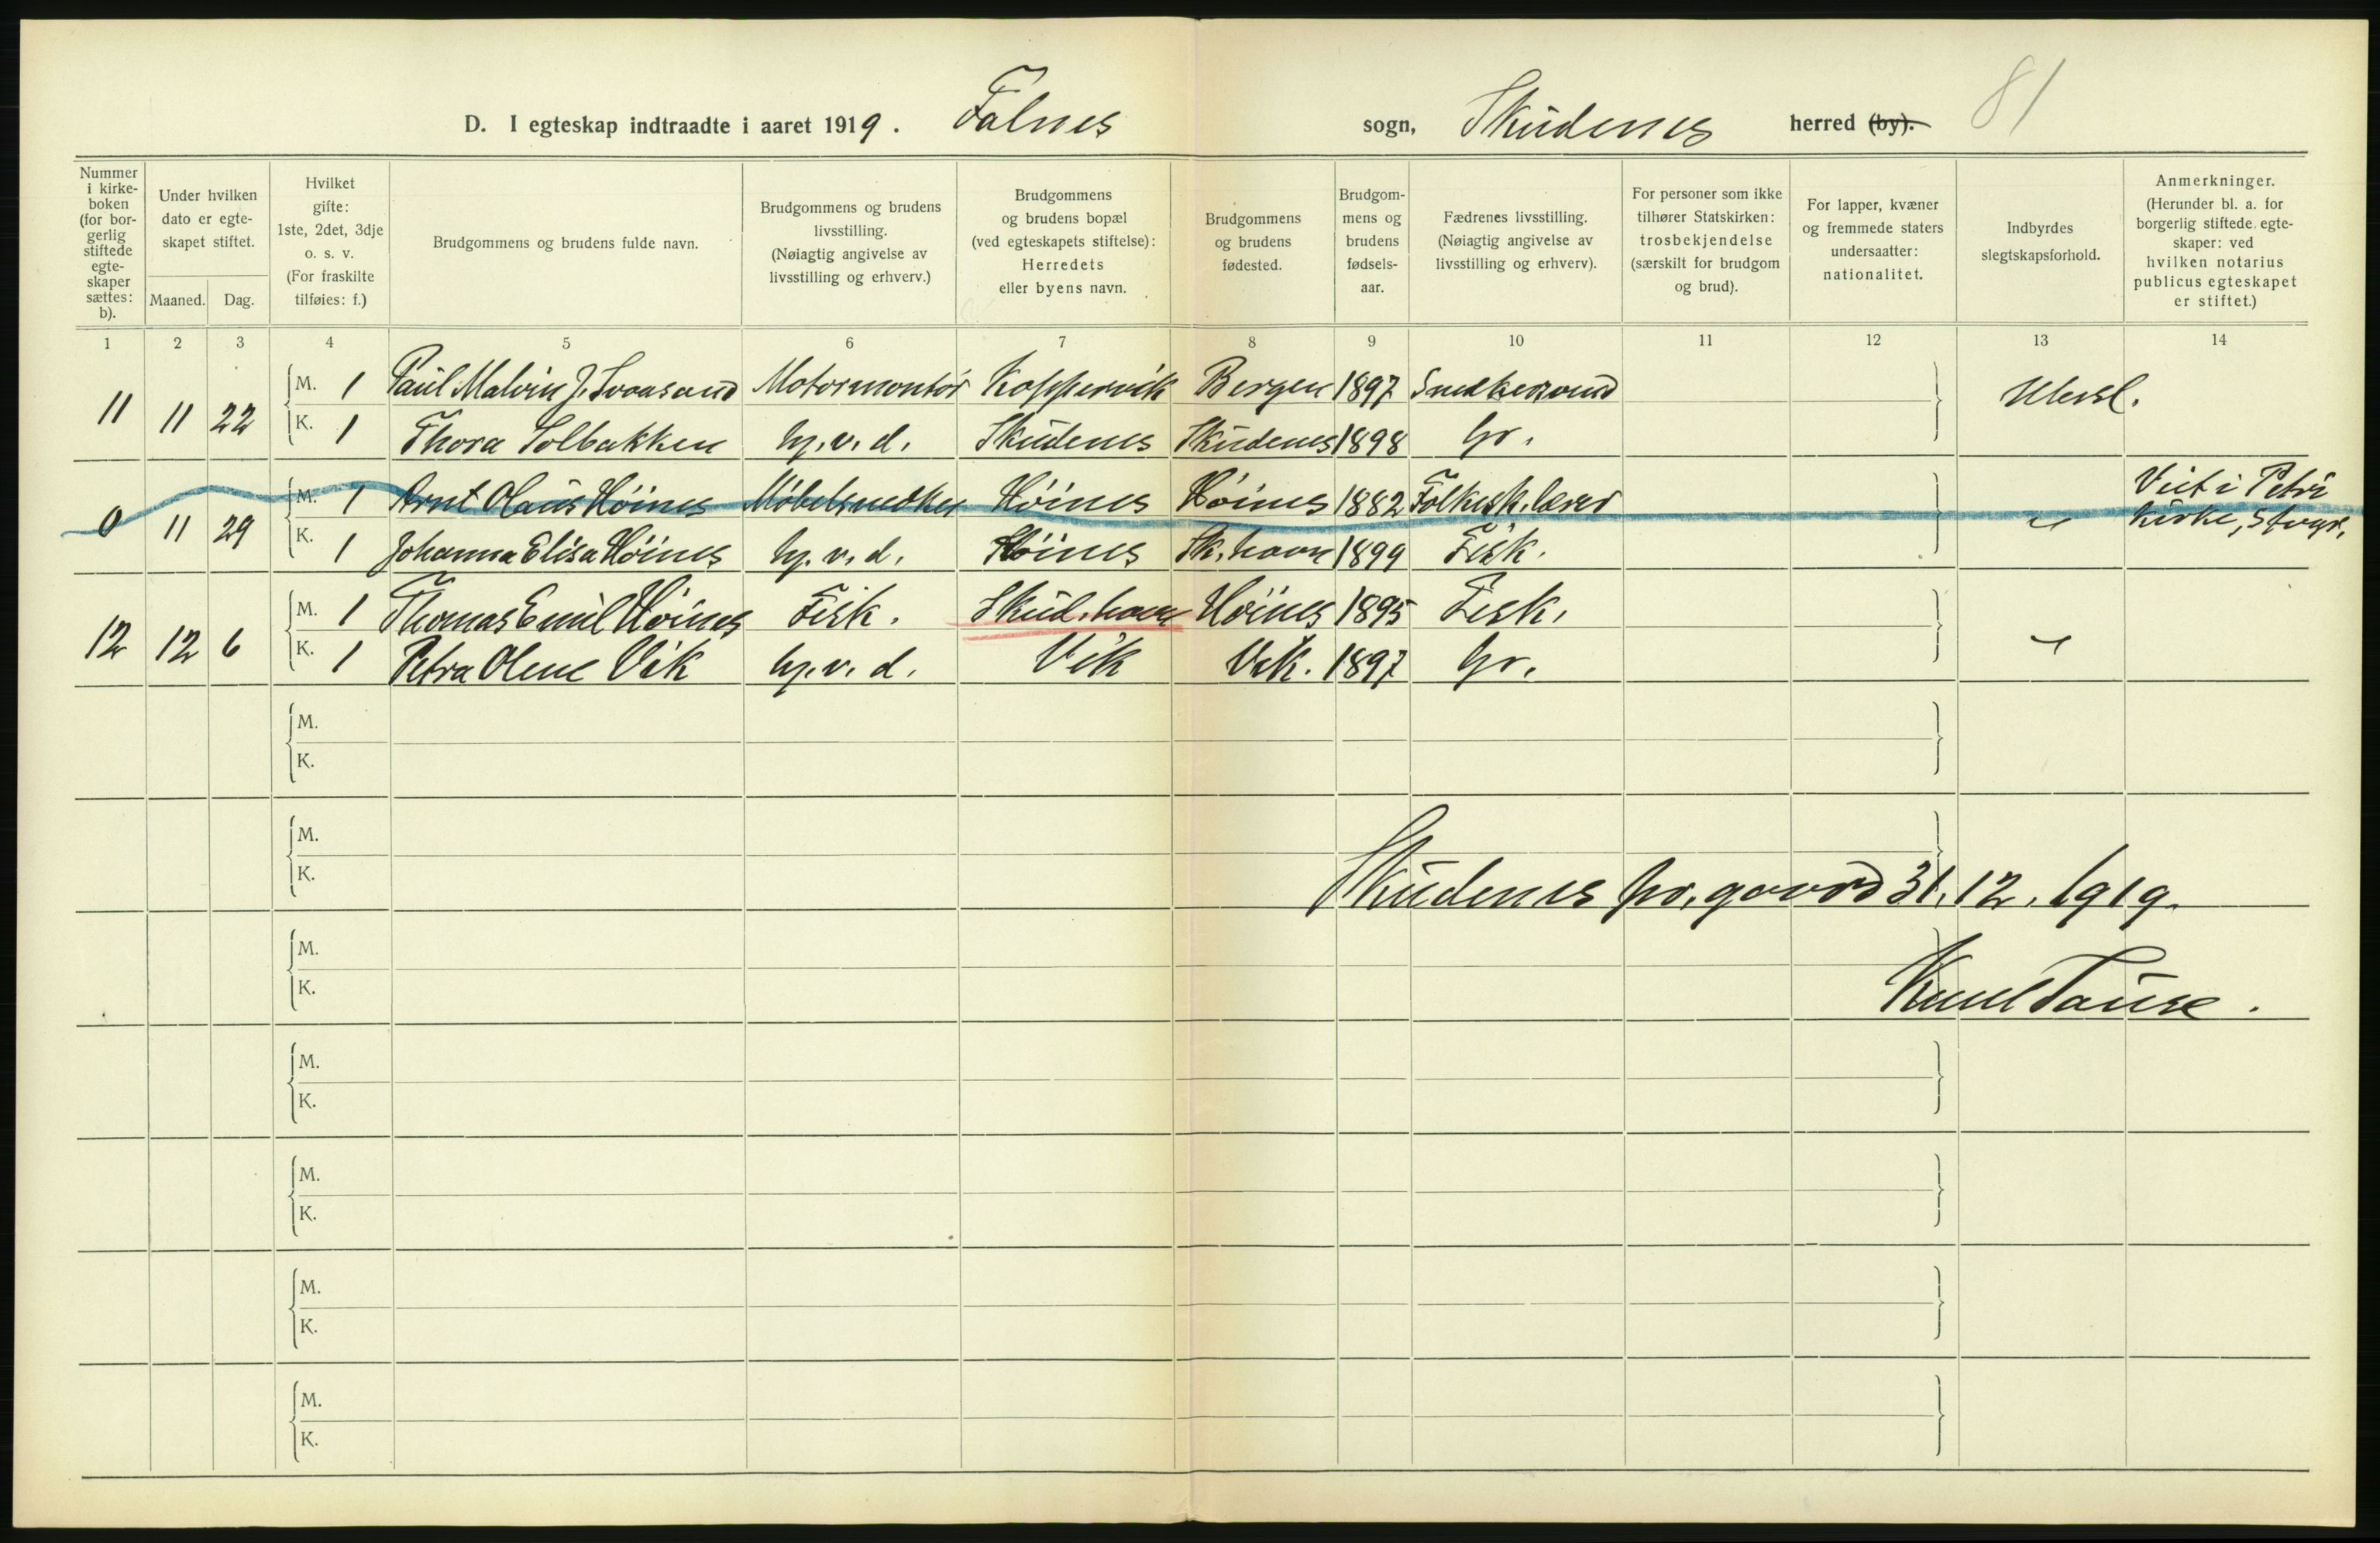 81
D. I egteskap indtraadte i aaret 1919. Falnes sogn, Skudenes herred (by).
Nummer i kirkeboken (for borgerlig stiftede egteskaper sættes: b).
Under hvilken dato er egteskapet stiftet.
Maaned. Dag.
Hvilket gifte: 1ste, 2det, 3dje o. s. v. (For fraskilte tilføies: f.)
Brudgommens og brudens fulde navn.
Brudgommens og brudens livsstilling. (Nøiagtig angivelse av livsstilling og erhverv.)
Brudgommens og brudens bopæl (ved egteskapets stiftelse): Herredets eller byens navn.
Brudgommens og brudens fødested.
Brudgommens og brudens fødselsaar.
Fædrenes livsstilling. (Nøiagtig angivelse av livsstilling og erhverv).
For personer som ikke tilhører Statskirken: trosbekjendelse (særskilt for brudgom og brud).
For lapper, kvæner og fremmede staters undersaatter: nationalitet.
Indbyrdes slegtskapsforhold.
Anmerkninger. (Herunder bl. a. for borgerlig stiftede egteskaper: ved hvilken notarius publicus egteskapet er stiftet.)
1 2 3 4 5 6 7 8 9 10 11 12 13 14
11 11 22 M. 1 Paul Malvin J. Svoasand Motormontør Koppervik Bergen 1897 Ubesl.
K. 1 Thora Solbakken hj. v. d. Skudenes Skudenes 1898 Gr.
0 11 29 M. 1 Arnt Olaus Høines Møbelsnedker Høines Høines 1882 Folkesk. lærer Viet i Petri
K. 1 Johanna Elisa Høines hj. v. d. Høines Sk. havn 1899 Fisk. kirke,
12 12 6 M. 1 Thomas Emil Høines Fisk. Skud. havn Høines 1895 Fisk.
K. 1 Petra Olene Vik hj. v. d. Vik Vik. 1897 Gr.
M.
K.
M.
K.
Skudenes pr. gaard 31.12.1919.
M.
K.
M.
K.
M.
K.
M.
K.
M.
K.